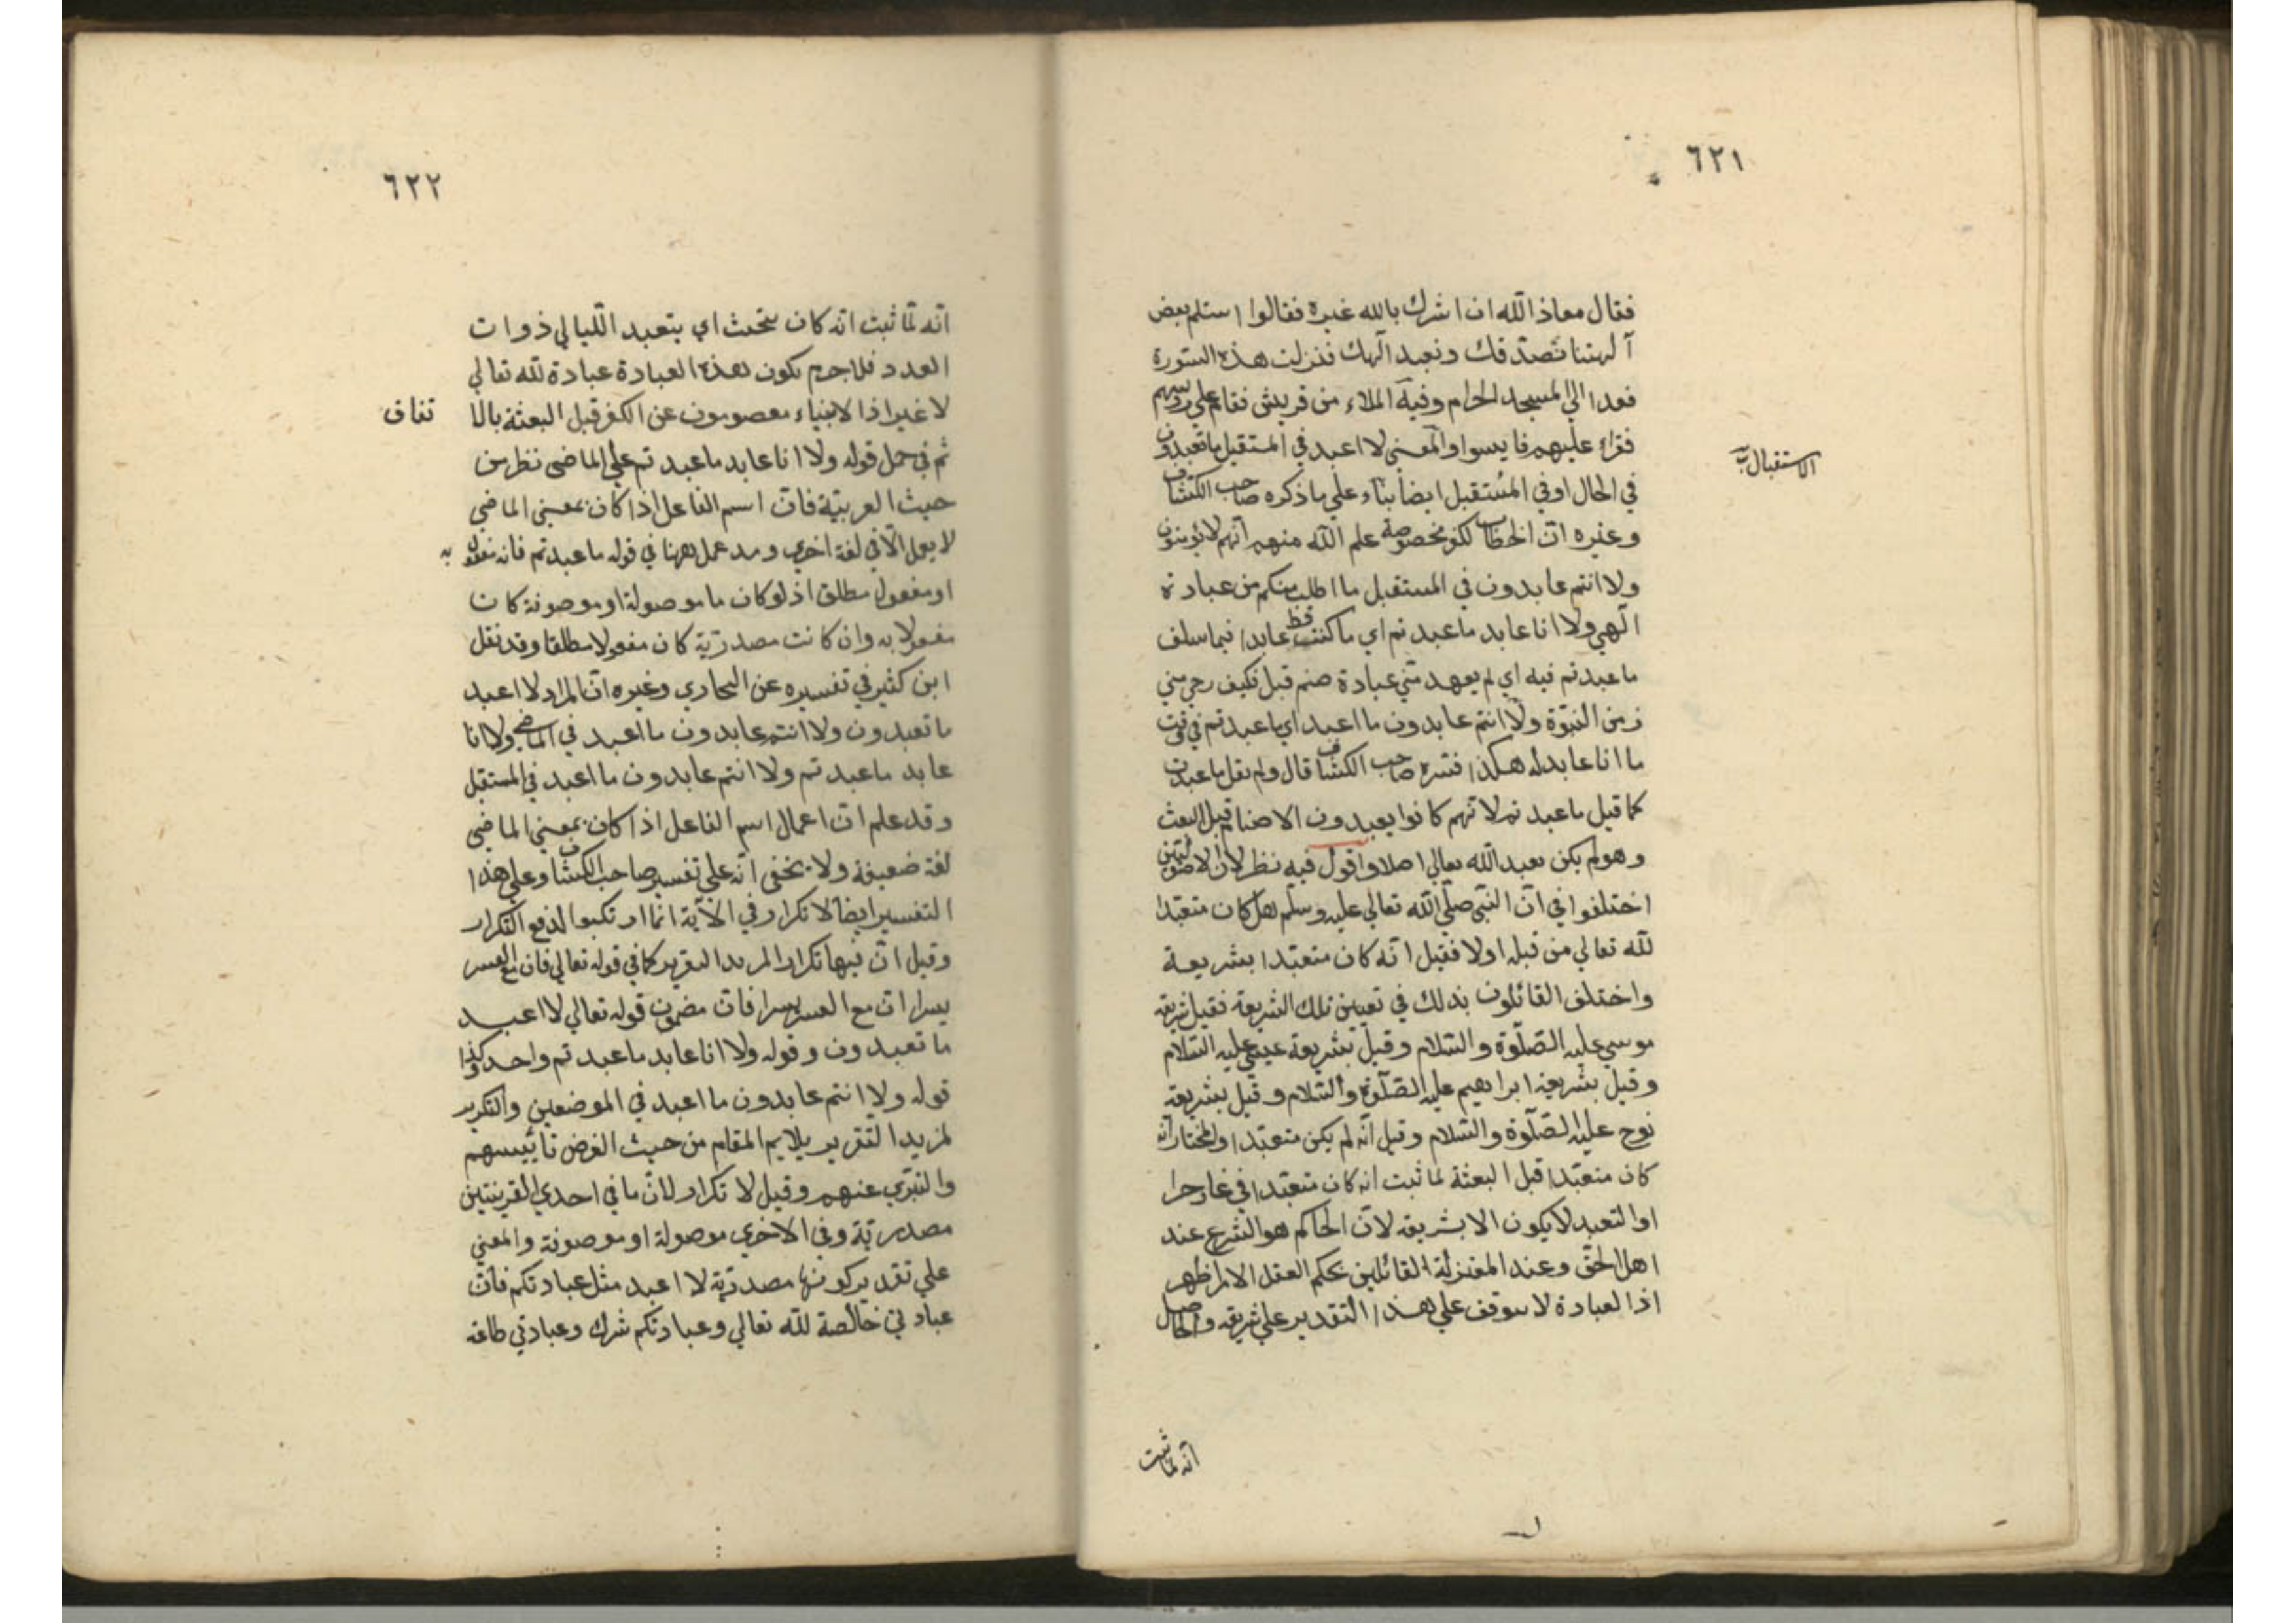 ٦٢١
فقال معاذ الله ان اشرك بالله غيره فقالوا استلم بعض
آلهتنا نصدقك ونعبد الهك فنزلت هذه السورة
فغدا الي المسجد الحرام وفيه الملاء من قريش فقام علي رؤسهم
فقراء عليهم فايسوا والمعني لا اعبد في المستقبل ما تعبدون
الاستقبال
في الحال او في المستقبل ايضا بناء علي ما ذكره صاحب الكشاف
وغيره ان الخطاب لكفرة مخصوصة علم الله منهم انهم لا يؤمنون
ولا انتم عابدون في المستقبل ما اطلب منكم من عبادة
الهي ولا انا عابد ما عبدتم اي ما كنت قط عابدا فيما سلف
ما عبدتم فيه اي لم يعهد مني عبادة صنم قبل فكيف رجي مني
زمن النبوة ولا انتم عابدون ما اعبد اي ما عبدتم في وقت
ما انا عابد له هكذا فسره صاحب الكشاف قال ولم يقل ما عبدت
كما قيل ما عبدتم لانهم كانوا يعبدون الاصنام قبل البعث
وهو لم يكن يعبد الله تعالي اصلا واقول فيه نظر لان الاصوليين
اختلفوا في ان النبي صلي الله تعالي عليه وسلم هل كان متعبدا
لله تعالي من قبله اولا فقيل انه كان متعبدا بشريعة
واختلف القائلون بذلك في تعيين تلك الشريعة فقيل شريعة
موسي عليه الصلوة والسلام وقيل بشريعة عيسي عليه السلام
وقيل بشريعة ابراهيم عليه الصلوة والسلام وقيل بشريعة
نوح عليه الصلوة والسلام وقيل انه لم يكن متعبدا والمختار انه
كان متعبدا قبل البعثة لما ثبت انه كان متعبدا في غار حرا
او التعبد لا يكون الا بشريعة لان الحاكم هو الشرع عند
اهل الحق وعند المعتزلة القائلين بحكم العقل الامر اظهر
اذ العبادة لا يتوقف علي هذا التقدير علي شريعة والحاصل
انه لما ثبت
٦٢٢
انه لما ثبت انه كان يتحنث اي يتعبد الليالي ذوات
العدد فلا جرم يكون هذه العبادة عبادة لله تعالي
لا غير اذ الانبياء معصومون عن الكفر قبل البعثة بالا تفاق
ثم في حمل قوله ولا انا عابد ما عبدتم علي الماضي نظر من
حيث العربية فان اسم الفاعل اذا كان بمعني الماضي
لا يعمل الا في لغة اخري وقد عمل ههنا في قوله ما عبدتم فانه مفعول به
او مفعول مطلق اذ لو كان ما موصولة او موصوفة كان
مفعولا به وان كانت مصدرية كان مفعولا مطلقا وقد نقل
ابن كثير في تفسيره عن البخاري وغيره ان المراد لا اعبد
ما تعبدون ولا انتم عابدون ما اعبد في الماضي ولا انا
عابد ما عبدتم ولا انتم عابدون ما اعبد في المستقبل
وقد علم ان اعمال اسم الفاعل اذا كان بمعني الماضي
لغة ضعيفة ولا يخفي انه علي تفسير صاحب الكشاف وعلي هذا
التفسير ايضا لا تكرار في الآية انما ارتكبوا لدفع التكرار
وقيل ان فيها تكرار المزيد التقرير كما في قوله تعالي فان مع العسر
يسرا ان مع العسر يسرا فان مضمون قوله تعالي لا اعبد
ما تعبدون وقوله ولا انا عابد ما عبدتم واحد وكذا
قوله ولا انتم عابدون ما اعبد في الموضعين والتكرير
لمزيد التقرير يلايم المقام من حيث الغرض تاييسهم
والتبري عنهم وقيل لا تكرار لان ما في احدي القرينتين
مصدرية وفي الاخري موصولة او موصوفة والمعني
علي تقدير كونها مصدرية لا اعبد مثل عبادتكم فان
عبادتي خالصة لله تعالي وعبادتكم شرك وعبادتي طاعة